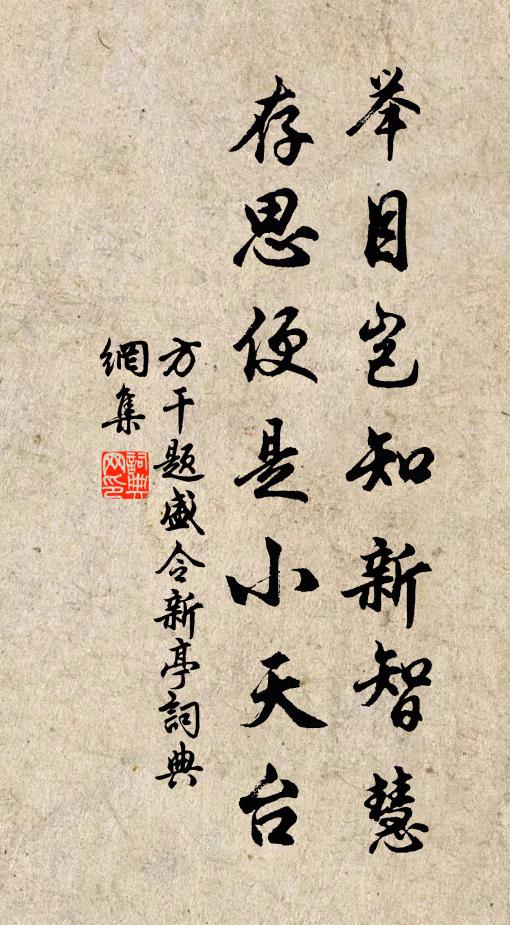 举目岂知新智慧
存思便是小天台
方干题盛令新亭詞典
網集
詞典
网印